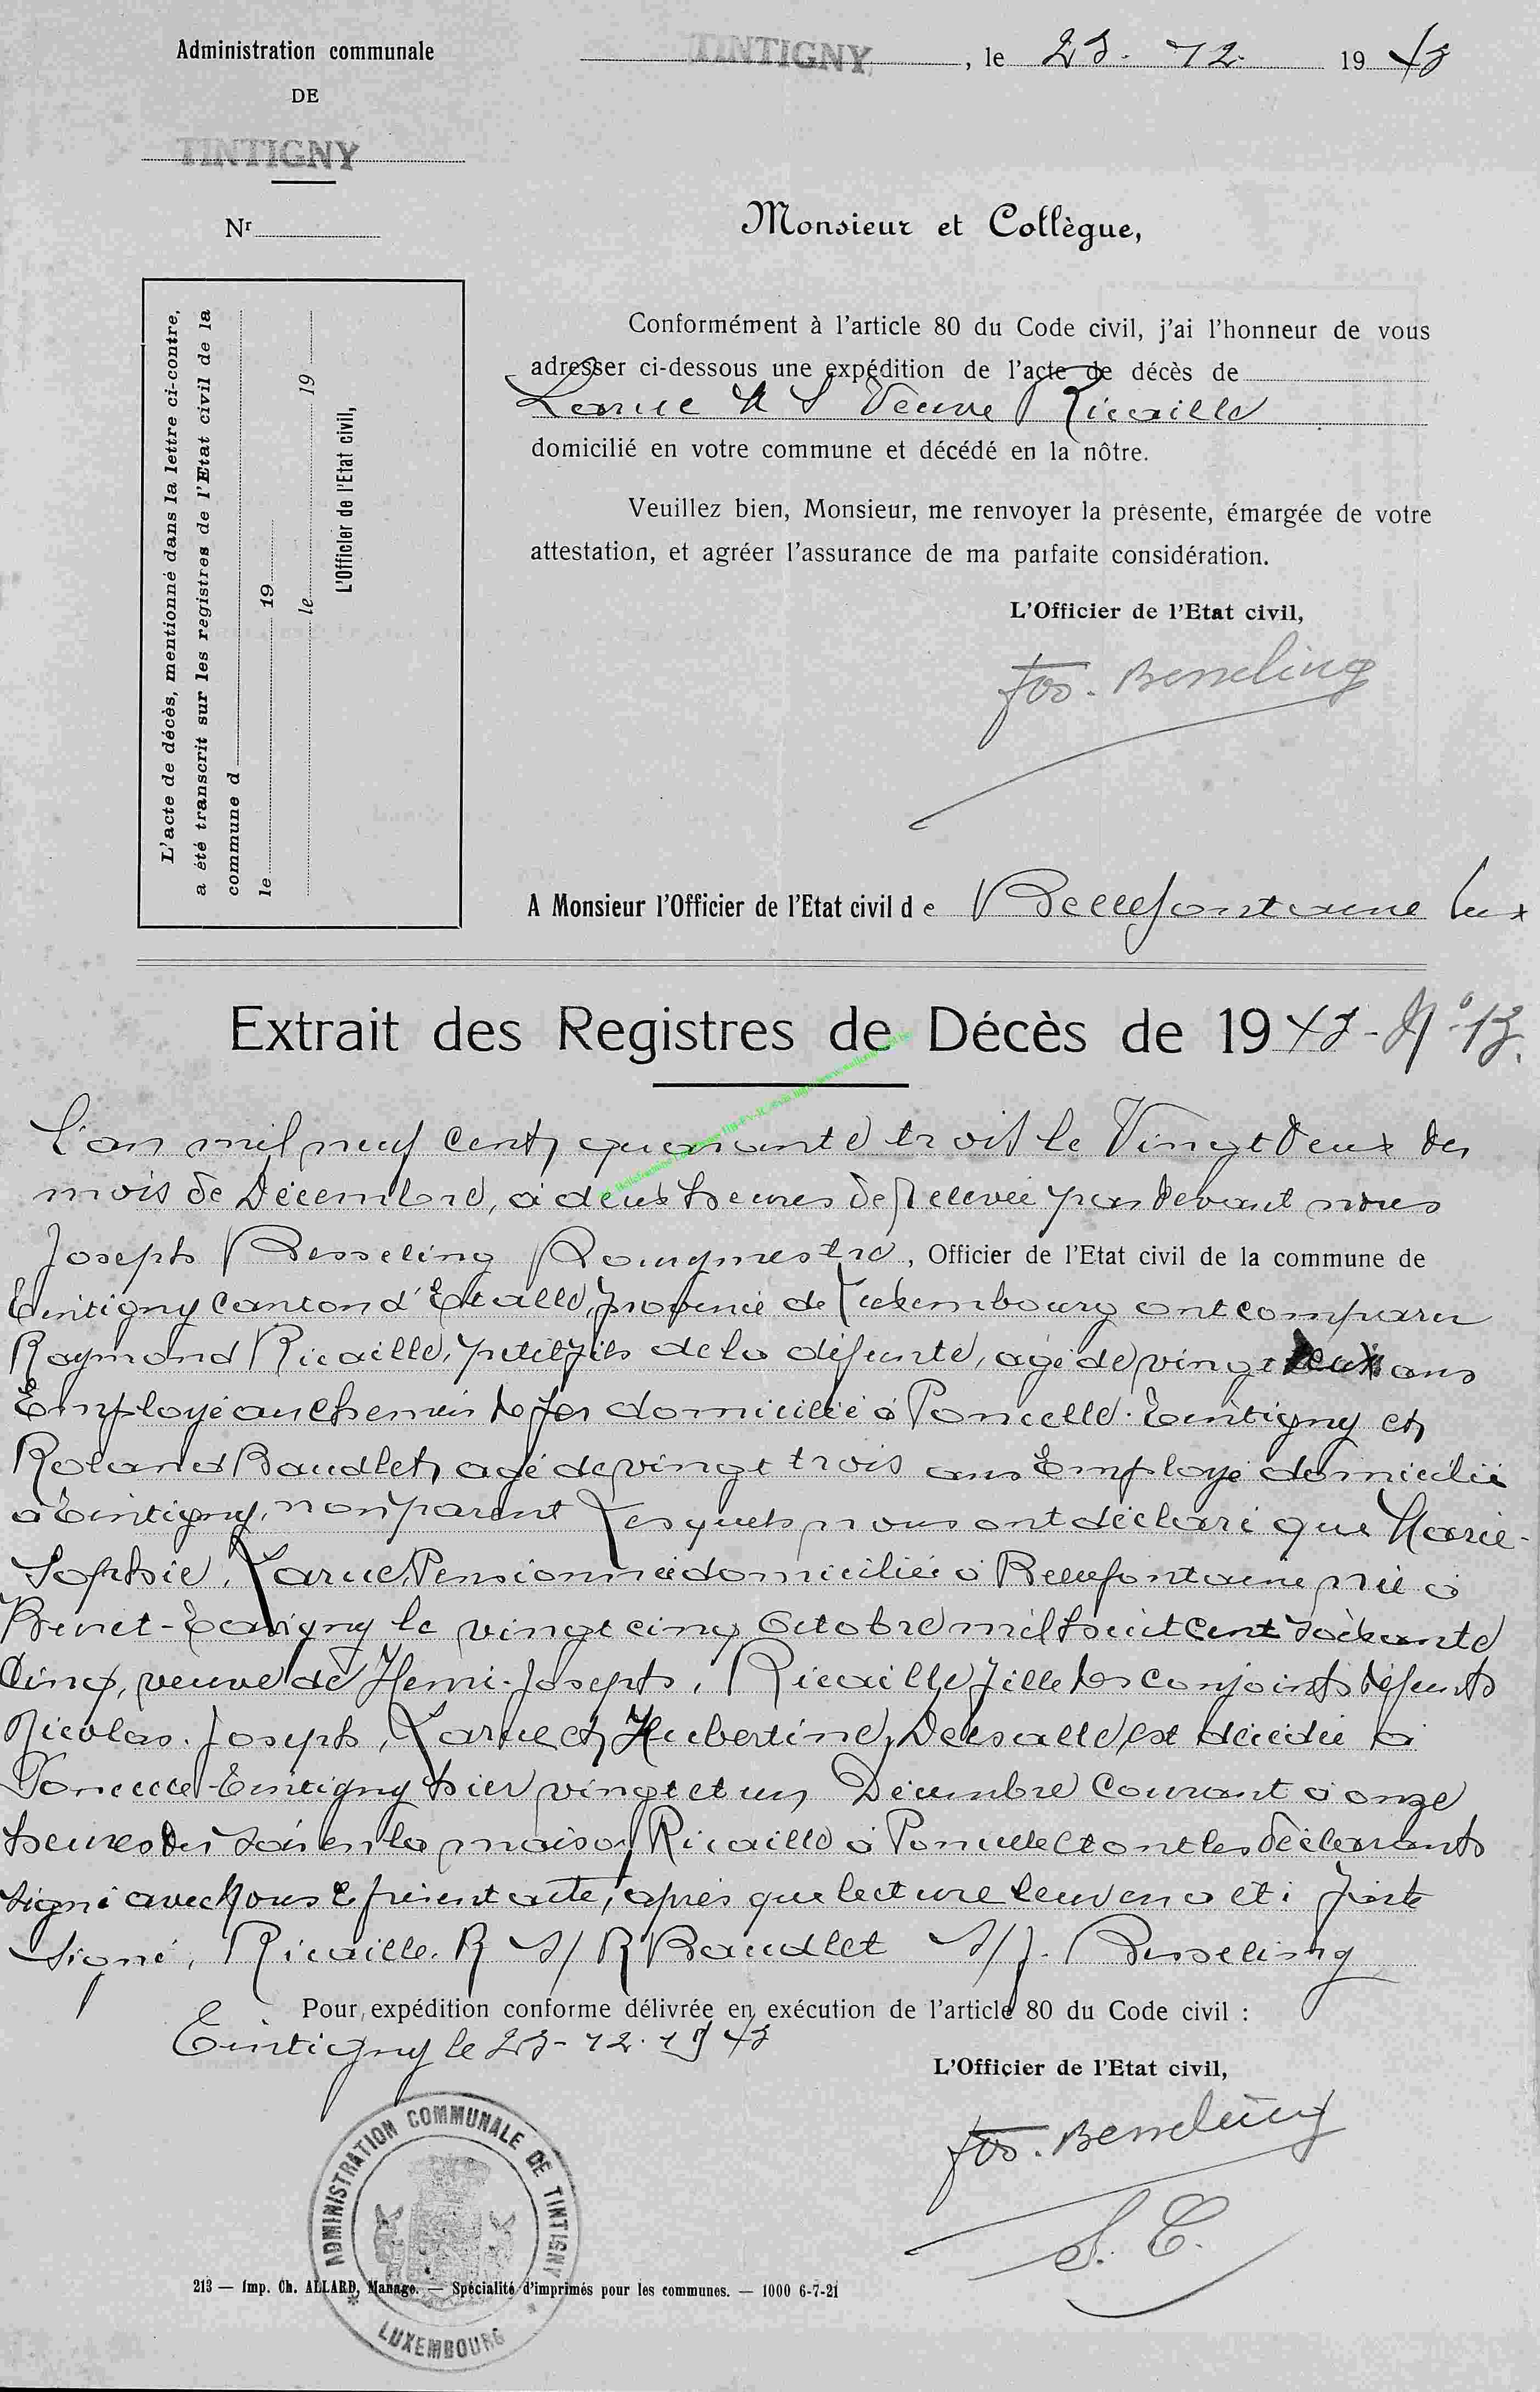 Administration communale
DE
TINTIGNY
Nr
TINTIGNY, le 23. 12. 1943
Monsieur et Collègue,
Conformément à l'article 80 du Code civil, j'ai l'honneur de vous
adresser ci-dessous une expédition de l'acte de décès de
Larue M S Veuve Ricaille
domicilié en votre commune et décédé en la nôtre.
Veuillez bien, Monsieur, me renvoyer la présente, émargée de votre
attestation, et agréer l'assurance de ma parfaite considération.
L'Officier de l'Etat civil,
Jos. Besseling
L'acte de décès, mentionné dans la lettre ci-contre,
a été transcrit sur les registres de l'Etat civil de la
commune d
le 19
le 19
L'Officier de l'Etat civil,
A Monsieur l'Officier de l'Etat civil de Bellefontaine Lux
Extrait des Registres de Décès de 1943 - N° 13.
L'an mil neuf cent quarante trois le Vingt Deux du
mois de Décembre, à deux heures de relevée par devant nous
Joseph Besseling Bourgmestre, Officier de l'Etat civil de la commune de
Tintigny canton d'Etalle, province de Luxembourg ont comparu
Raymond Ricaille, petit fils de la défunte, agé de vingt deux ans
Employé au chemin de fer domicilié à Poncelle-Tintigny et
Roland Baudlet agé de vingt trois ans Employé domicilié
à Tintigny, non parent Lesquels nous ont déclaré que Marie-
Sophie, Larue, Pensionnée domiciliée à Bellefontaine née à
le vingt cinq Octobre mil huit cent soixante
Cinq, veuve de Henri-Joseph, Ricaille, fille des conjoints défunts
Nicolas-Joseph, Larue et Hubertine, est décédée à
Poncelle-Tintigny hier vingt et un Décembre Courant à onze
heures du soir en la maison Ricaille à Poncelle et ont les déclarants
signé avec Nous le présent acte, après que lecture leur en a été faite
Signé, Ricaille. R S/ R Baudlet S/ J. Besseling
Pour expédition conforme délivrée en exécution de l'article 80 du Code civil :
Tintigny le 23-12-1943
L'Officier de l'Etat civil,
Jos. Besseling
ADMINISTRATION COMMUNALE DE TINTIGNY
LUXEMBOURG
213 — Imp. Ch. ALLARD, Manage. — Spécialité d'imprimés pour les communes. — 1000 6-7-21